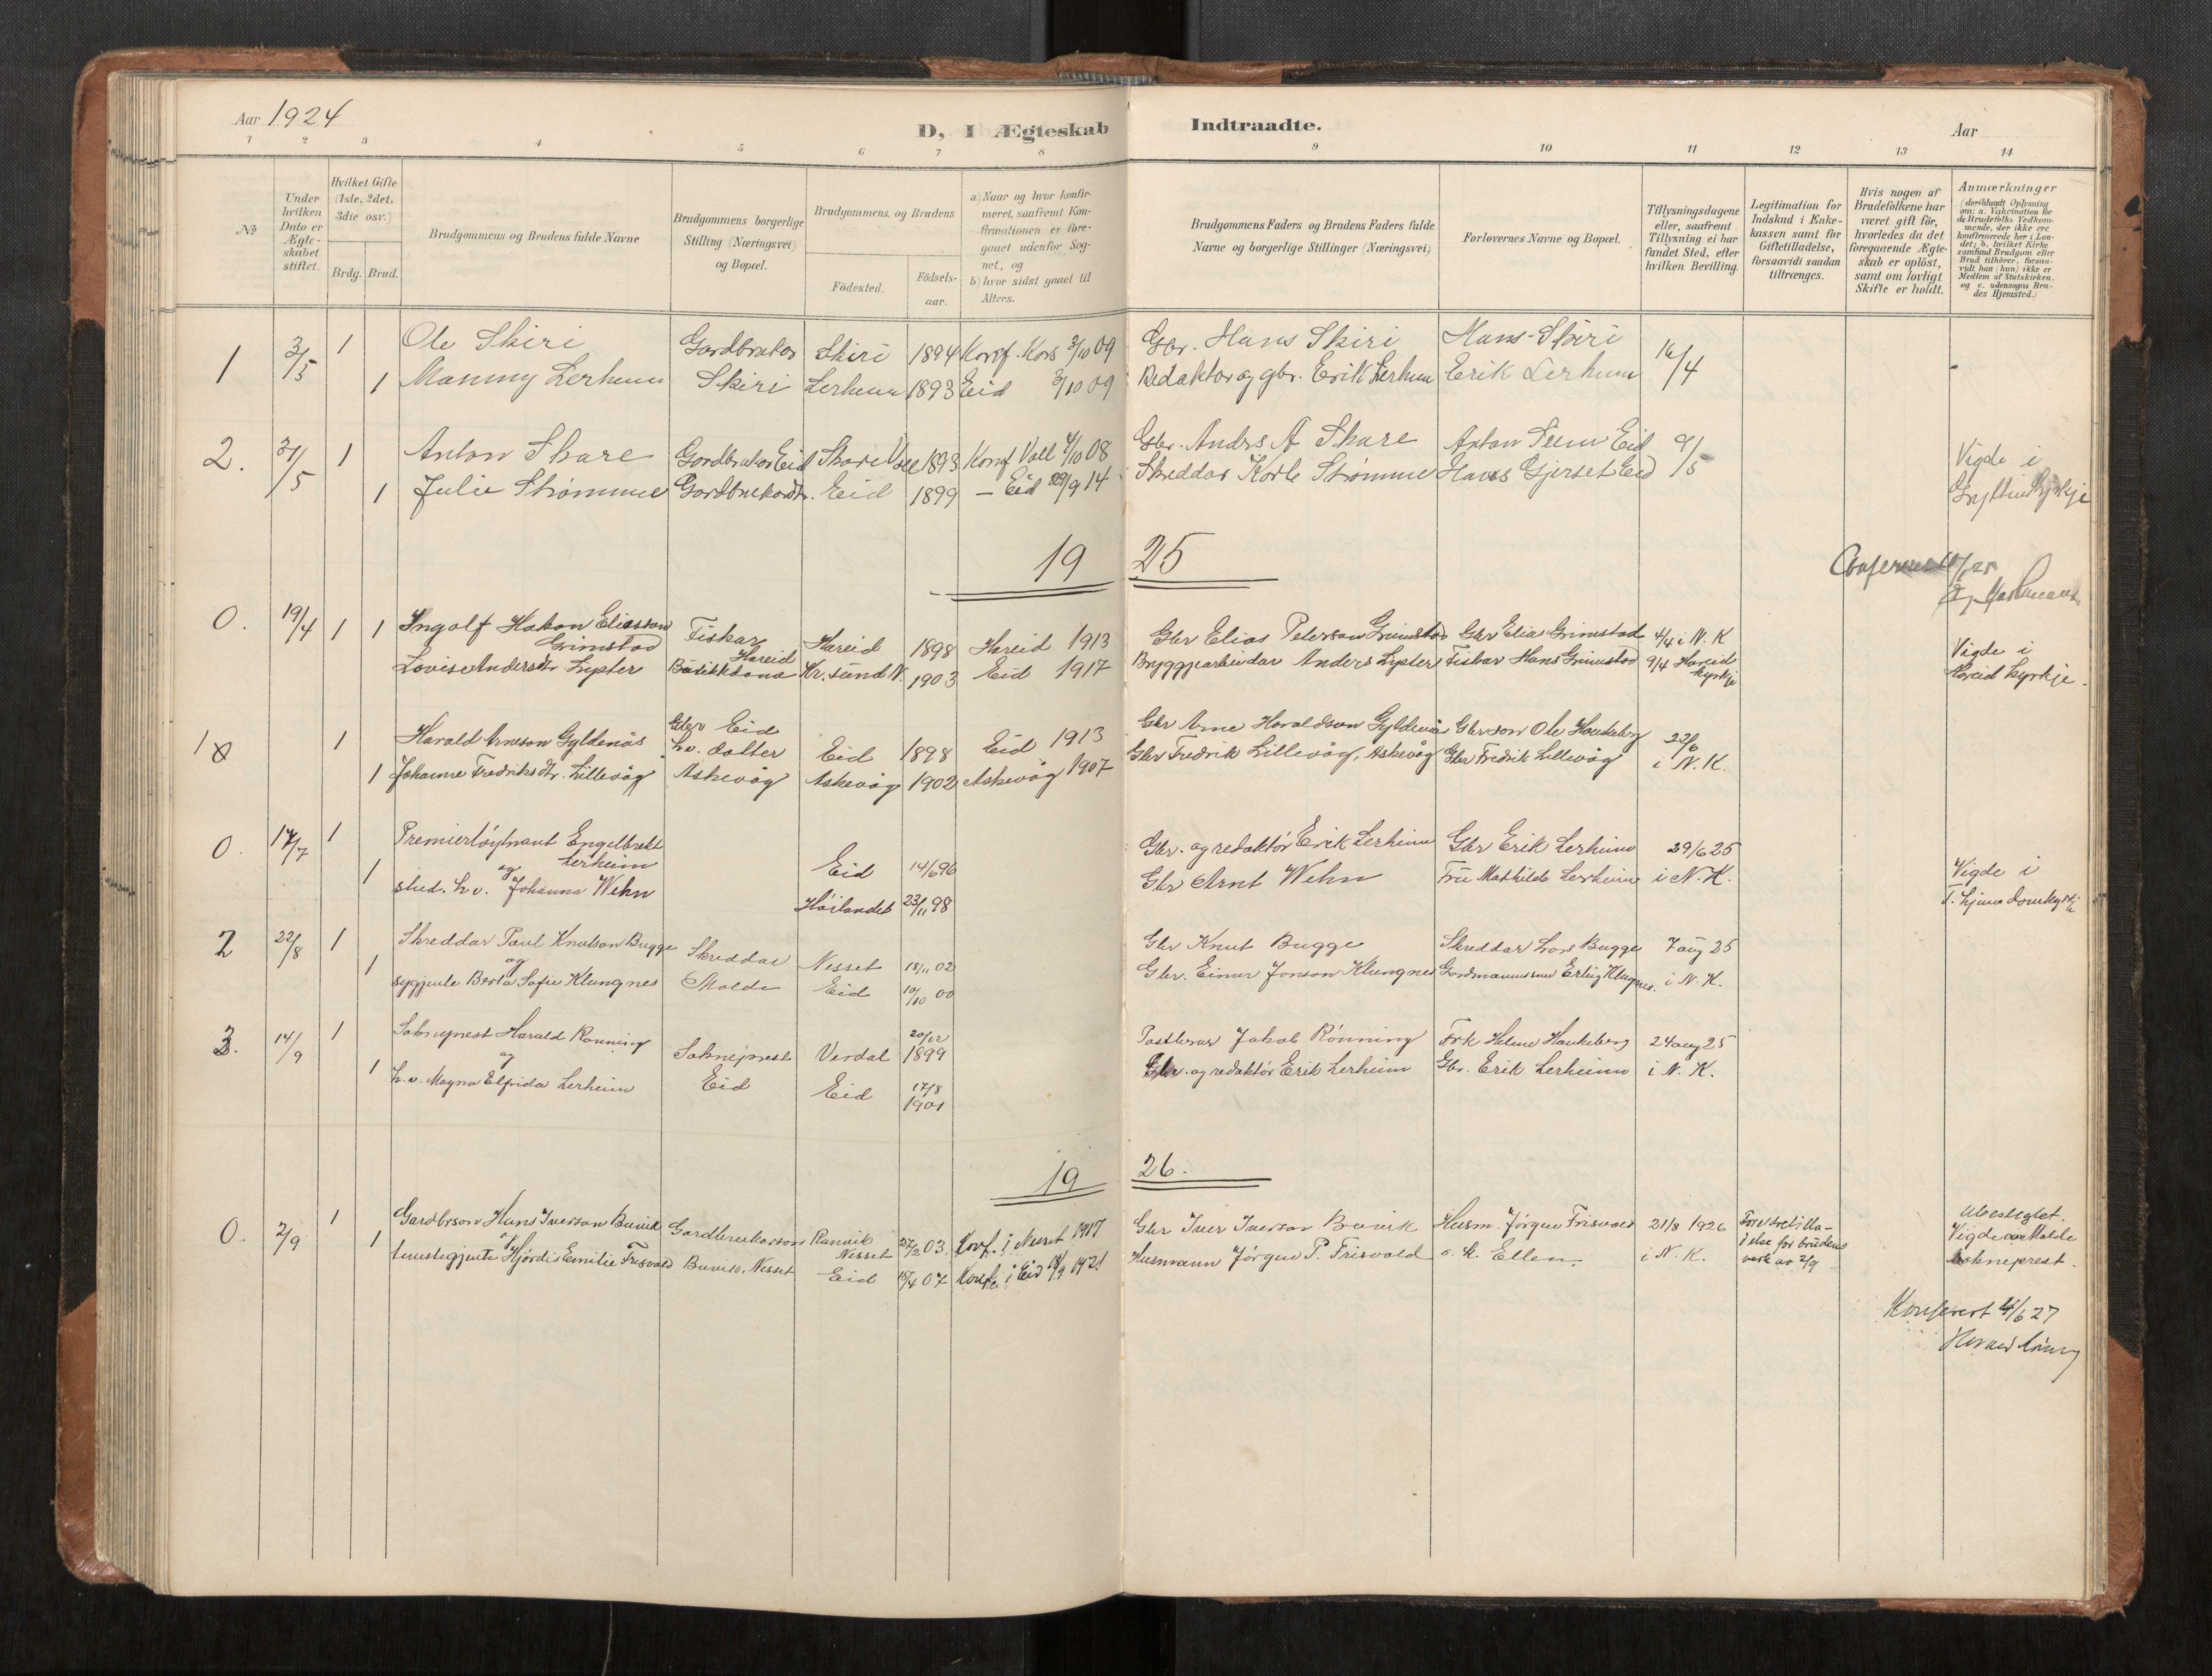 Aar 1924
D, I Ægteskab Indtraadte.
Aar
1 2 3 4 5 6 7 8 9 10 11 12 13 14
No
Under hvilken Dato er Ægteskabet stiftet.
Hvilket Gifte (1ste, 2det, 3die osv.)
Brdg. Brud.
Brudgommens og Brudens fulde Navne
Brudgommens borgerlige Stilling (Næringsvei) og Bopæl.
Brudgommens og Brudens
Födested.
Födsels-aar.
a) Naar og hvor konfirmeret, saafremt Konfirmationen er foregaaet udenfor Sognet, og
b) hvor sidst gaaet til Alters.
Brudgommens Faders og Brudens Faders fulde Navne og borgerlige Stillinger (Næringsvei)
Forlovernes Navne og Bopæl.
Tillysningsdagene eller, saafremt Tillysning ei har fundet Sted, efter hvilken Bevilling.
Legitimation for Indskud i Enkekassen samt for Giftetilladelse, forsaavidt saadan tiltrænges.
Hvis nogen af Brudefolkene har været gift för, hvorledes da det foregaaende Ægteskab er oplöst, samt om lovligt Skifte er holdt.
Anmærkninger
(deriblandt Oplysning om: a. Vakcination for de Brudefolks Vedkommende, der ikke ere konfirmerede her i Landet; b. hvilket Kirkesamfund Brudgom eller Brud tilhörer, forsaavidt han (hun) ikke er Medlem af Statskirken, og c. udensogns Brudes Hjemsted.)
1 3/5 1 Ole Skiri Gardbrukar Skiri 1894 Konf. Kors 3/10 09 Gbr. Hans Skiri Hans Skiri 16/4
1 Lerheim Skiri Lerheim 1893 Eid 3/10 09 Redaktor og gbr. Erik Lerheim Erik Lerheim
2. 31/5 1 Anton Skare Gardbrukar Eid Skare 1893 Konf Voll 4/10 08 Gbr. Andrs A Skare Anton Eid 9/5 Vigde i
1 Julie Strømme Gardbrukardtr. Eid 1899 – Eid 9 14 Skreddar Strømme Hans Gjerset Eid
19 25
0. 19/4 1 1 Ingolf Hakon Eliasson Grimstad Fiskar Hareid Hareid 1898 Hareid 1913 Gbr Elias Peterson Grimstad Gbr Elias Grimstad 4/4 i N. K Vigde i
Lovise Andersdtr. Kr.sund N. 1903 Eid 1917 Bryggjearbeidar Anders Fiskar Hans Grimstad 9/4 Hareid kyrkje Hareid kyrkje.
1 1 Harald Arneson Gyldenås Gbr Eid Eid 1898 Eid 1913 Gbr Arne Haraldson Gyldenås Gbrson Ole Haukeberg 22/6
1 Johanne Fredriksdtr. Lillevåg h.v. dotter Askevåg Askevåg 1902 Askevåg 1907 Gbr Fredrik Lillevåg, Askevåg Gbr Fredrik Lillevåg i N. K.
0. 17/7 1 Premierløytnant Engelbrekt Lerheim Eid 14/6 96 Gbr. og redaktör Erik Lerheim Gbr Erik Lerheim 29/6 25 Vigde i
og
1 stud. h.v. Johanna Wehn Höilandet 23/11 98 Gbr Arnt Wehn Fru Mathilde Lerheim i N. K.
2 22/8 1 Skreddar Paul Knutson Bugge Skreddar Nesset 18/11 02 Gbr Knut Bugge Skreddar Lars Bugge 7 aug 25
og
1 sygjente Berta Sofie Klungnes Molde Eid 10/10 00 Gbr. Einar Jonson Klungnes Gardmannsson Erling Klungnes. i N. K.
3. 14/9 1 Sokneprest Harald Rönning Sokneprest Verdal 20/12 1899 Jakob Rönning Frk Helene Haukeberg 24 aug 25
og
1 h.v. Magna Elfrida Lerheim Eid Eid 17/8 1901 Gbr. og redaktör Erik Lerheim Gbr. Erik Lerheim i N. K.
19 26.
0. 2/9 1 Gardbrson Hans Iverson Buvik Gardbrukarson Ranvik Nesset 27/2 03. Konf. i Nesset 1917 Gbr Iver Iverson Buvik Husm. Jörgen Frisvold 21/8 1926 Ubeslegtet.
og
1 tenestgjente Hjördis Emilie Frisvold Buvik, Nesset Eid 15/4 07 Konf. i Eid 1921 Husmann Jörgen P. Frisvold o. k. Ellen. i N. K. for brudens av 2/9 Vigde av Molde sokneprest.
Konferert 4/6 27
Harald Rönning